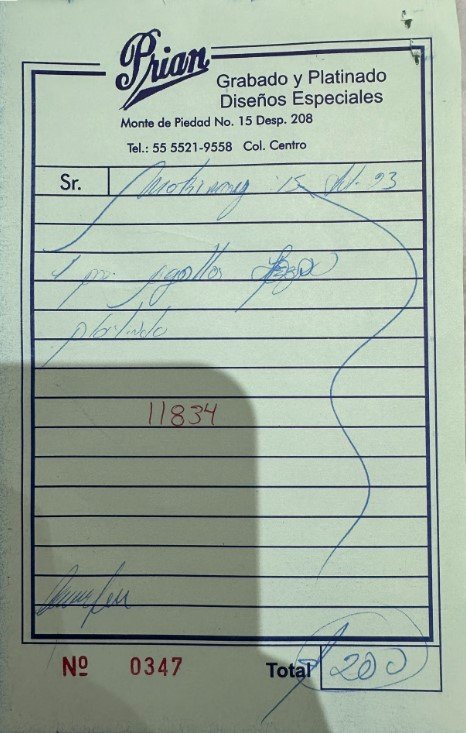 Prian
Grabado y Platinado
Diseños Especiales
Monte de Piedad No. 15 Desp. 208
Tel.: 55 5521-9558 Col. Centro
Sr. 15 93
platinado
11834
Nº 0347 Total 200